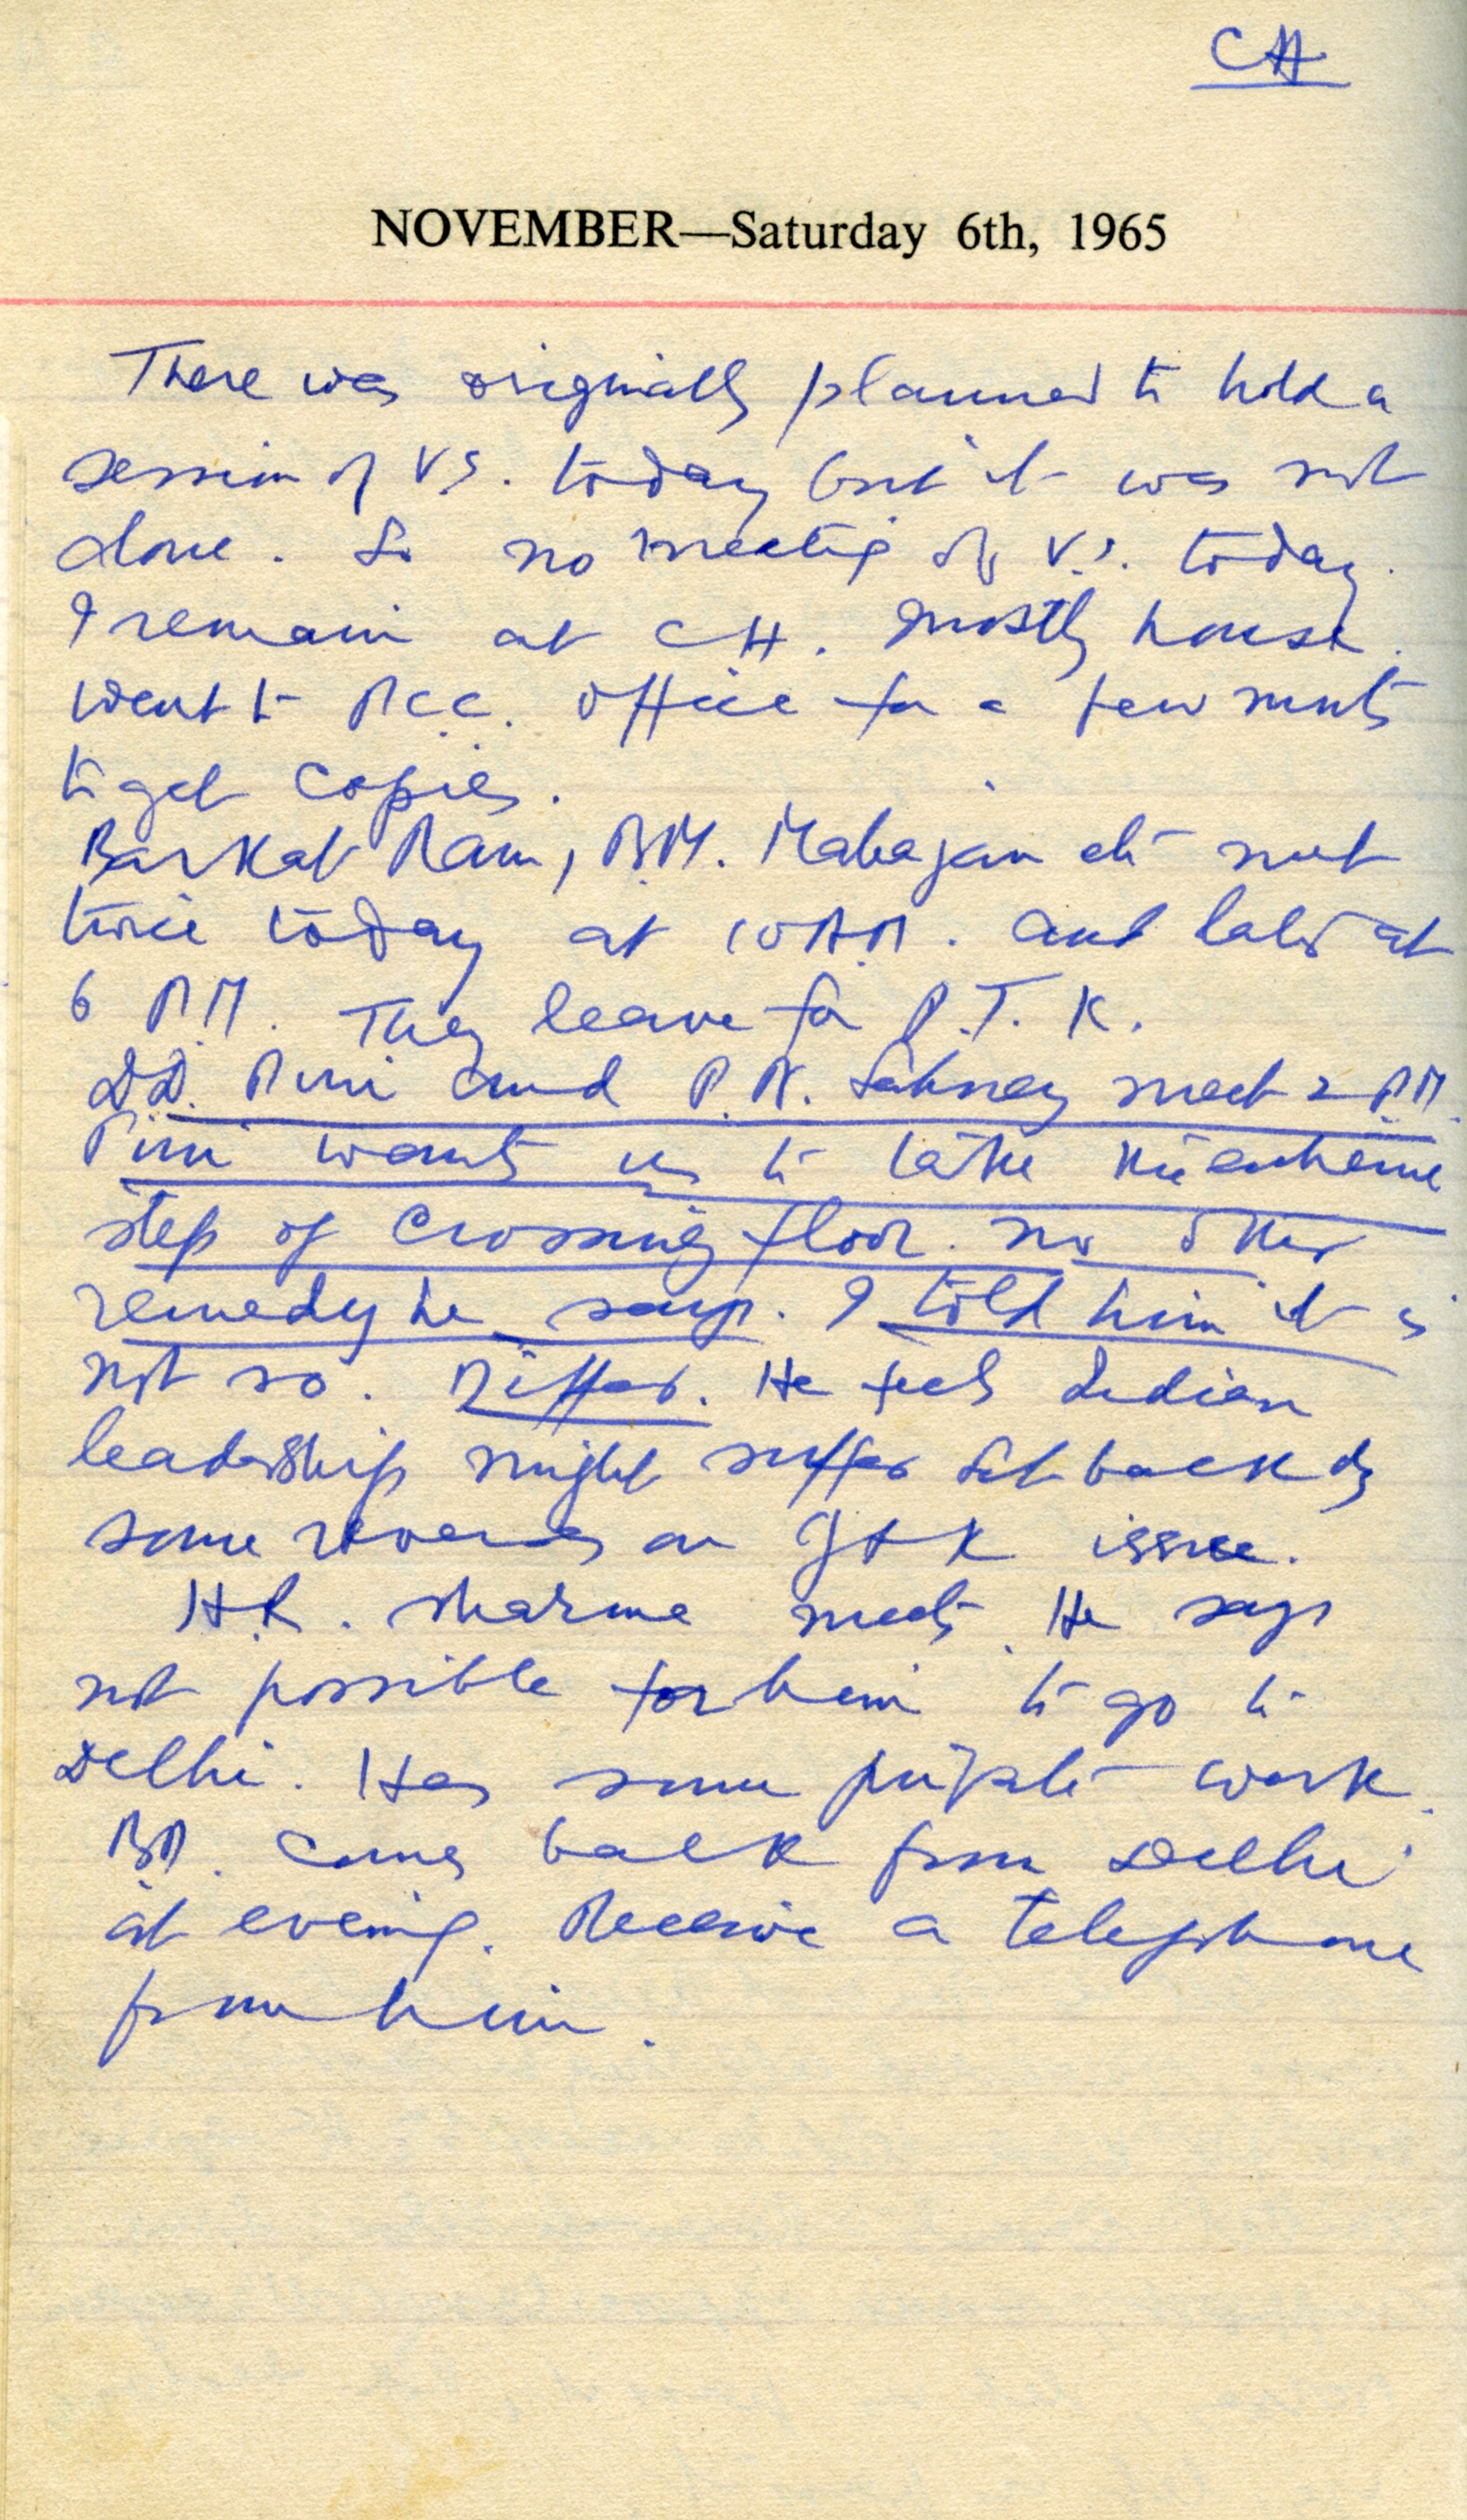 CH
NOVEMBER—Saturday 6th, 1965
There was originally planned to hold a
session of V.S. today but it was not
done. So no meeting of V.S. today.
I remain at CH. mostly house.
Went to P.C.C. office for a few mnts
to get copies.
Barkat Ram, B.M. Mahajan etc meet
twice today at 10 A.M. and later at
6 P.M. They leave for P.T.K.
D.D. Puri and P.N. Sahney meet 2 P.M.
Puri wants us to take the extreme
step of crossing floor. no other
remedy he says. I told him it is
not so. Differ. He feels Indian
leadership might suffer set back by
some reverses on J&K issue.
H.R. Sharma meets. He says
not possible for him to go to
Delhi. Has some private work.
BP. comes back from Delhi
at evening. Receive a telephone
from him.